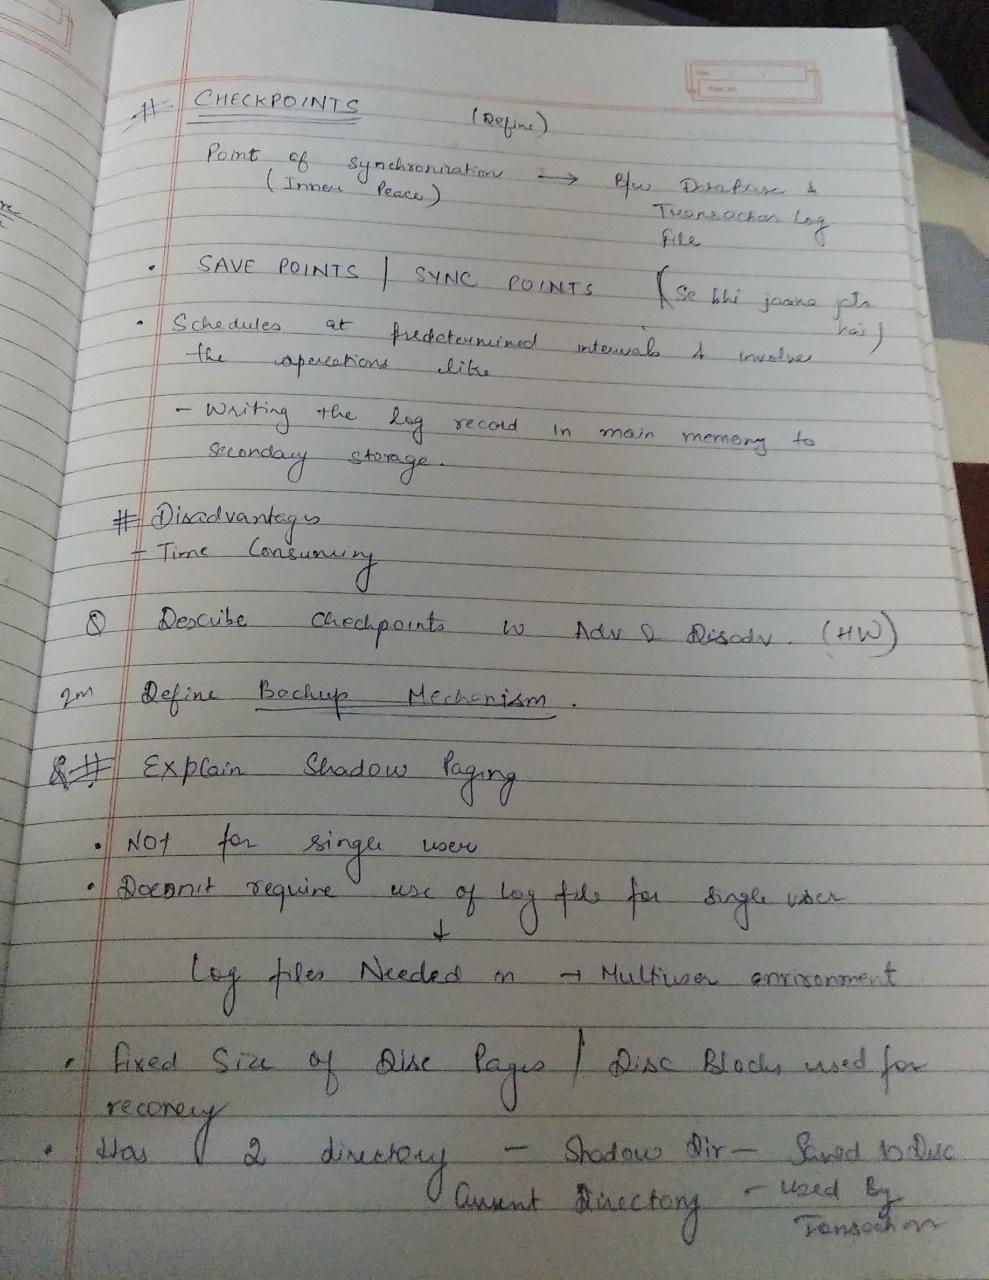 # CHECKPOINTS (Define)
Point of Synchronization → B/w Database &
(Inner Peace) Transaction Log
file
• SAVE POINTS | SYNC POINTS (Se bhi jaana jata
hai)
• Schedules at predetermined intervals & involves
the operations like
- Writing the log record in main memory to
secondary storage.
# Disadvantages
- Time Consuming
Q Describe checkpoints w Adv & Disadv. (HW)
2m Define Backup Mechanism.
# Explain Shadow Paging
• Not for single user
• Doesn't require use of log file for single user
↓
Log files Needed in → Multiuser environment
• Fixed Size of Disc Pages / Disc Blocks used for
recovery
• Has 2 directory - Shadow Dir - Saved to Disc
Current Directory - Used By
Transaction